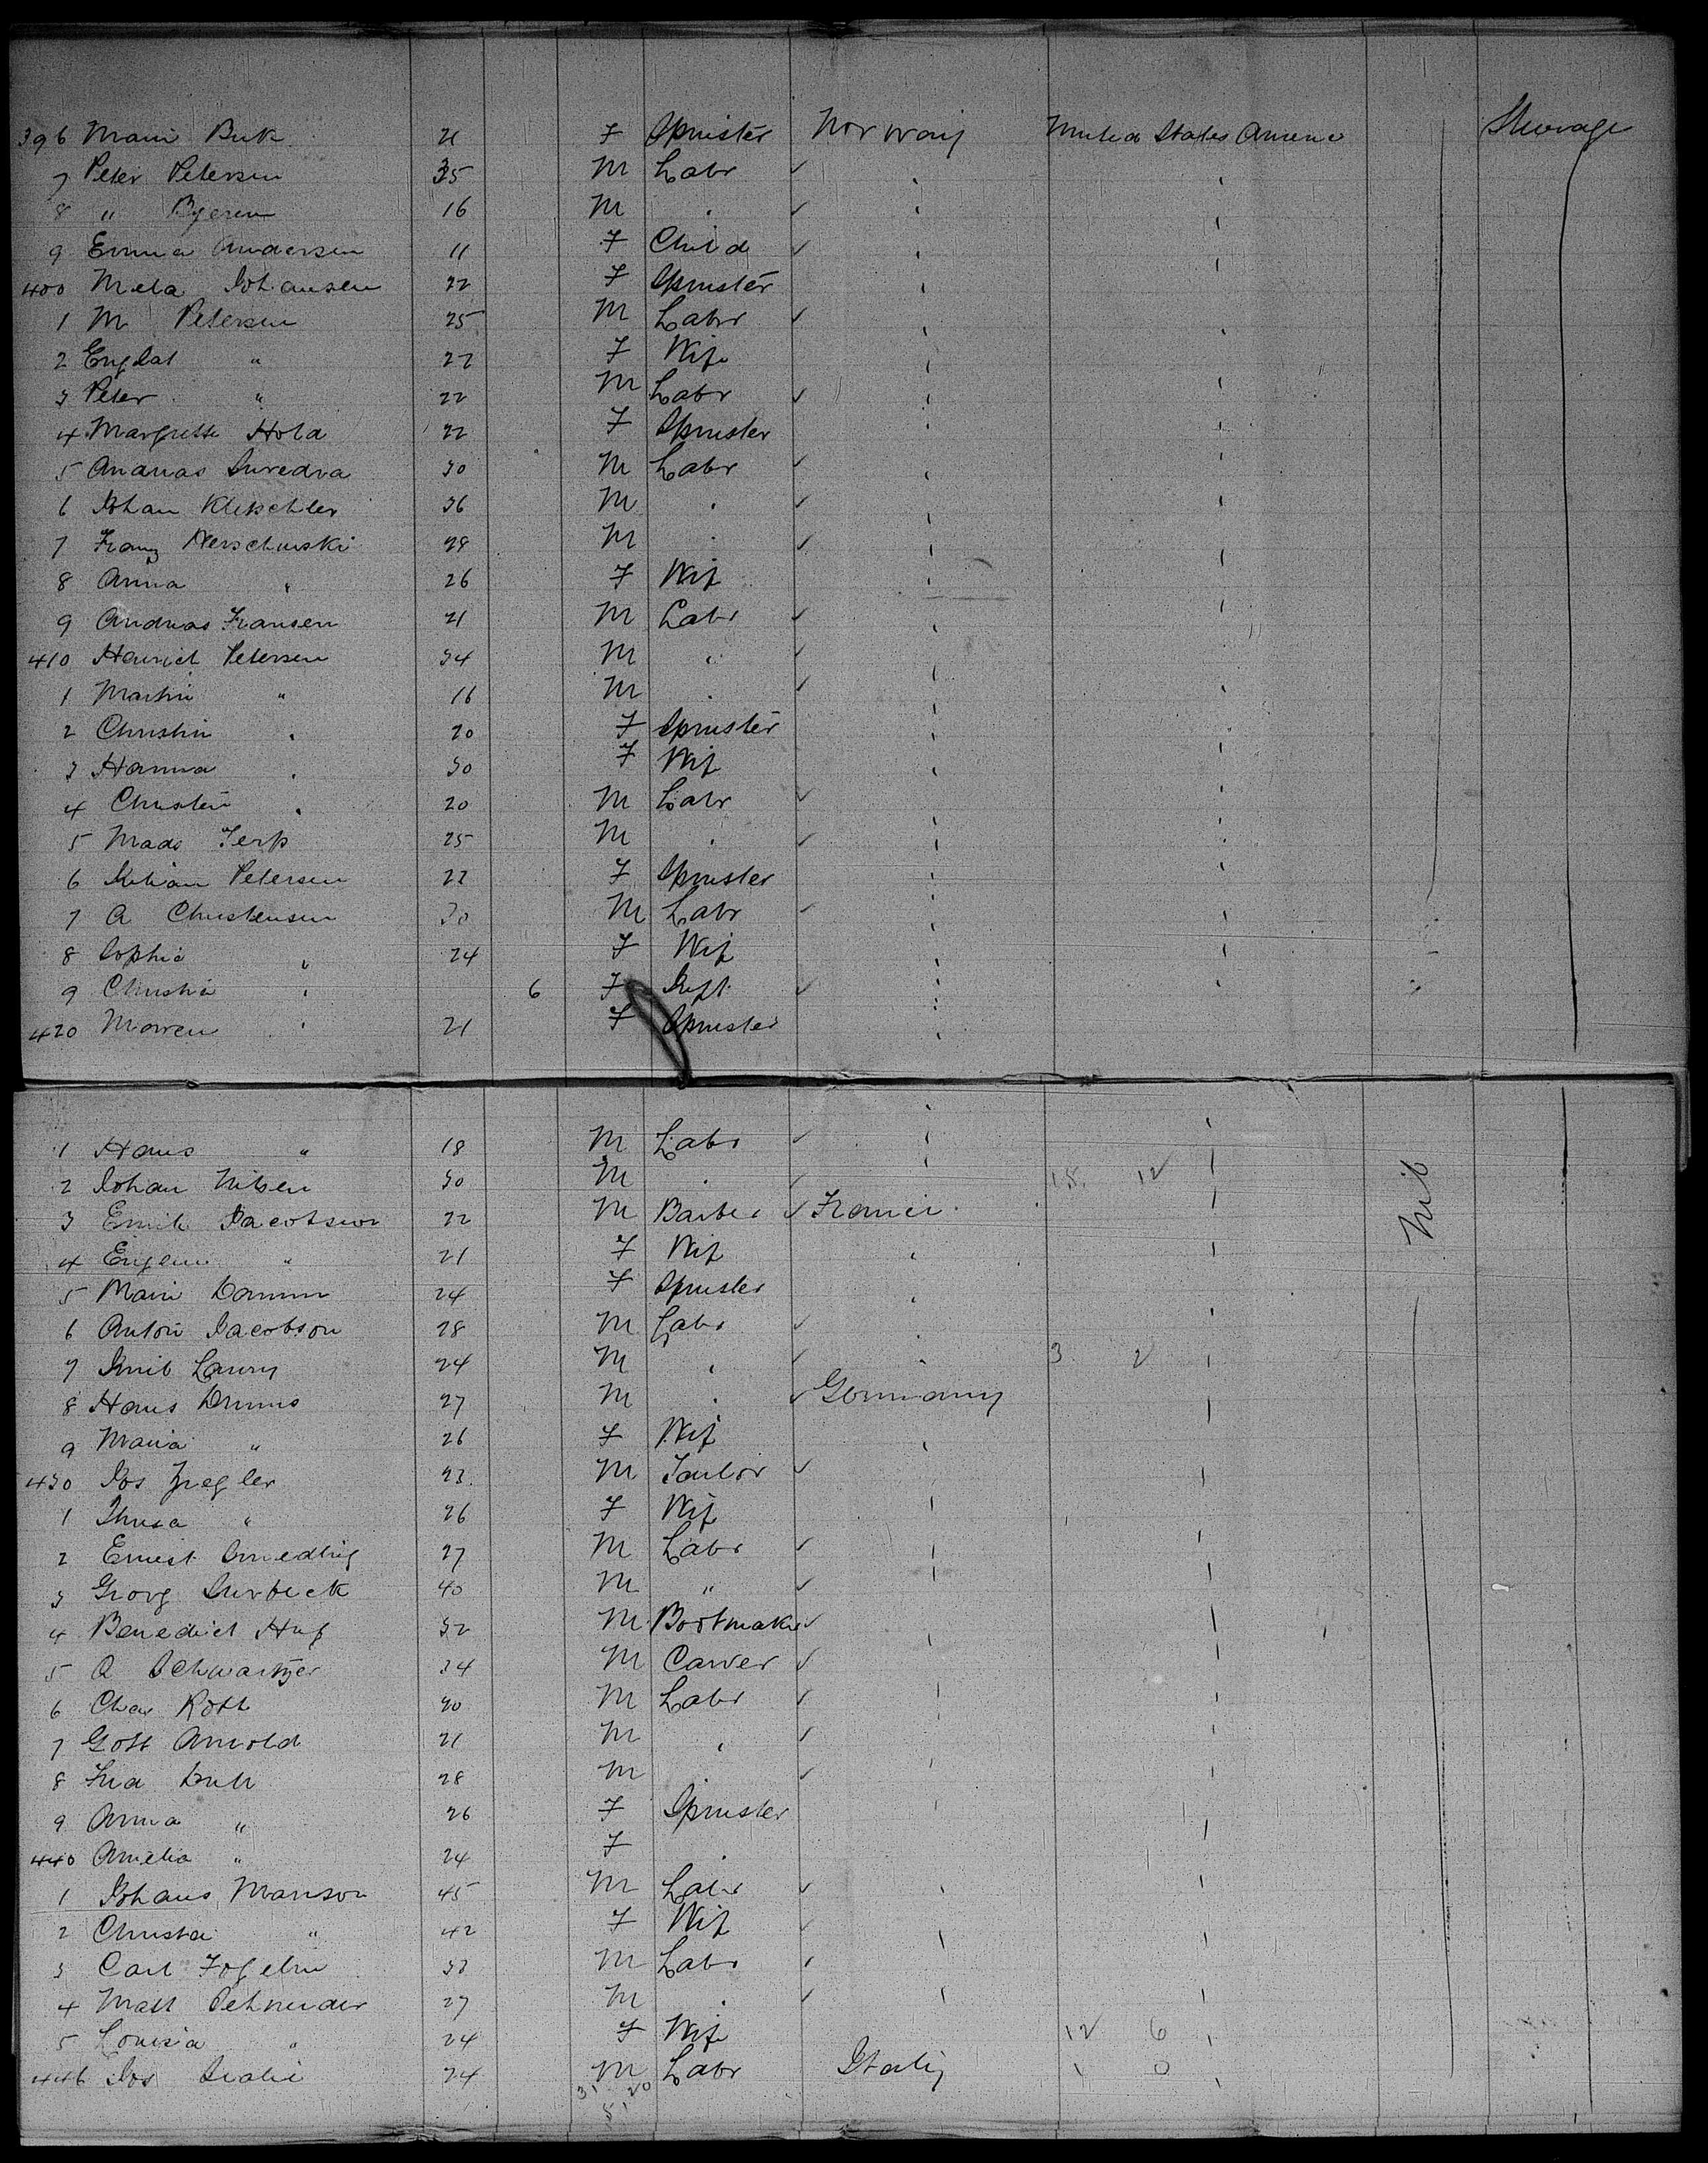 396 Marie Buk 21 F Spinster Norway United States America Steerage
7 Peter Petersen 35 M Labr ✓
8 " Bjeren 16 M " ✓
9 Emma Andersen 11 F Child ✓
400 Meta Johansen 22 F Spinster
1 M Petersen 25 M Labr ✓
2 Engdal " 22 F Wife
3 Peter " 22 M Labr ✓
4 Margrette Hola 22 F Spinster
5 Andreas 30 M Labr ✓
6 Johan Klepschler 36 M " ✓
7 Franz Perschewski 28 M " ✓
8 Anna " 26 F Wife
9 Andreas Fransen 21 M Labr ✓
410 Heinrich Petersen 34 M " ✓
1 Martin " 16 M " ✓
2 Christin " 20 F Spinster
3 Hanna " 30 F Wife
4 Christen " 20 M Labr ✓
5 Mads Terp 25 M " ✓
6 Petersen 22 F Spinster
7 A Christensen 30 M Labr ✓
8 Sophie " 24 F Wife
9 Christia " 6 F Inft ✓
420 Maren " 21 F Spinster
1 Hans " 18 M Labr ✓
2 Johan Nilsen 30 M " ✓ 18. 12
3 Emil Jacobson 22 M Barber ✓ France
4 Eugene " 21 F Wife "
5 Marie Damm 24 F Spinster "
6 Anton Jacobson 28 M Labr ✓ "
7 Emil Laury 24 M " ✓ " 3 2
8 Hans 27 M " ✓ Germany
9 Maria " 26 F Wife
430 Jos Ziegler 23 M Tailor ✓
1 " 26 F Wife
2 Ernest 27 M Labr ✓
3 Georg Surbeck 40 M " ✓
4 Benedict Huf 32 M Bootmaker ✓
5 A Schwartzer 34 M Carver ✓
6 Chas Roth 40 M Labr ✓
7 Gott Arnold 21 M " ✓
8 28 M " ✓
9 Anna " 26 F Spinster
440 Amelia " 24 F "
1 Johans Manson 45 M Labr ✓
2 Christa " 42 F Wife
3 Carl Fogelin 33 M Labr ✓
4 Matt Schneider 27 M " ✓
5 Louisia " 24 F Wife 12 6
446 Jos 24 M Labr Italy 1 0
31 20
51
Nil